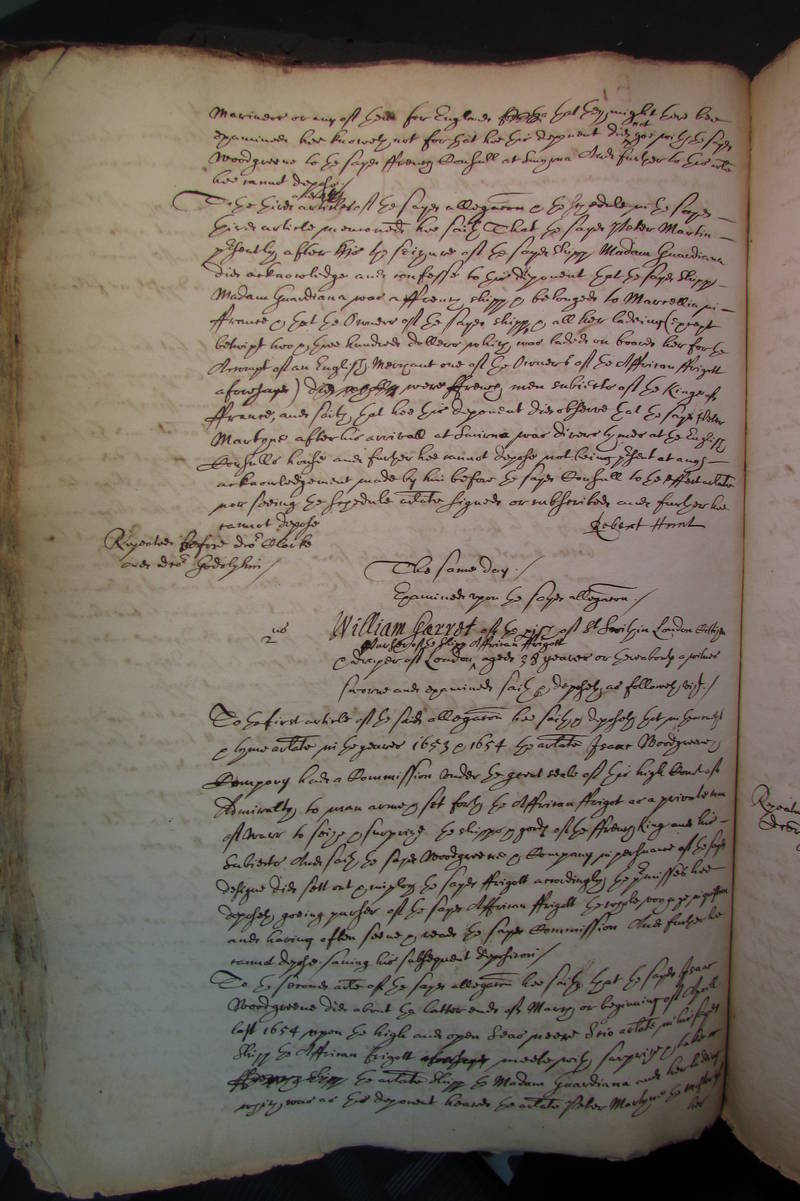 Mariners or any of them for England that they might here bee
examined hee knoweth not for that hee this deponent did not goe with the sayd
Woodgreene to the sayd ffrench Consull at Smyrna And further to this arte
hee cannot depose/
To the third article of the sayd allegation & the schedule in the sayd
third article mencioned hee saith That the sayd Peter Martin
presently after the seizure of the sayd shipp Madam Guardiana
did acknowledge and confesse to this deponent that the sayd shipp
Madam Guardiana was a ffrench shipp & belonged to Marcellia in
ffrance & that the Owners of the sayd shipp & all her ladeing (except
betwixt two & three hundred dollers which was laden on board her for the
Accompt of an English Merchant one of the Owners of the Affrican ffrigott
aforesayd) were ffrench men subiects of the Kinge of
ffrance, and saith that hee this deponent did observe that the sayd Peter
Martyne after his arrivall at Smirna was divers tymes at the English
Consulls house and further hee cannot depose not being present at any
acknowledgement made by him before the sayd Consull to the effect arlate
nor seeing the schedule arlate signed or subscribed and further hee
cannot depose
Robert Hunt
Repeated before doctor Clarke
and doctor Godolphin/
The same day:/
Examined upon the sayd allegation:/
2us
William Garret of the pish of St London Cittizen
of the shipp Affrican ffrigott
& draper of London, aged 38 yeares or thereabouts a witnes
sworne and examined saith & deposeth as followeth vizt:/
To the first article of the said allegation hee saith & deposeth that in the moneths
& tyme arlate in the yeares 1653 & 1654 the arlate Isaac Woodgreene &
Company had a Commission under the great seale of this high Court of
Admiralty to man arme & set forth the Affrican ffrigot as a private man
of Warr to seize & surprize the shipps & goods of the ffrench King and his
Subiects And saith the sayd Woodgreene & Company in pershuance of the sayd
designe did sett out & imploy the sayd ffrigott accordingly the premisses hee
deposeth goeing purser of the sayd Affrican ffrigott the whole voyage in question
and having often seene & reade the sayd Commission And further hee
cannot depose. saving his subsequent deposition/
To the second arte of the sayd allegation hee saith that the sayd Isaac
Woodgreene did about the latter end of March or beginning of Aprill
last 1654 upon the high and open Seas neere Scio arlate in his sayd
shipp the Affrican frigott meete with surprize & take
the arlate shipp the Madam Guardiana and her ladeing
which was as this deponent heard the arlate Peter Martyne the master of
her